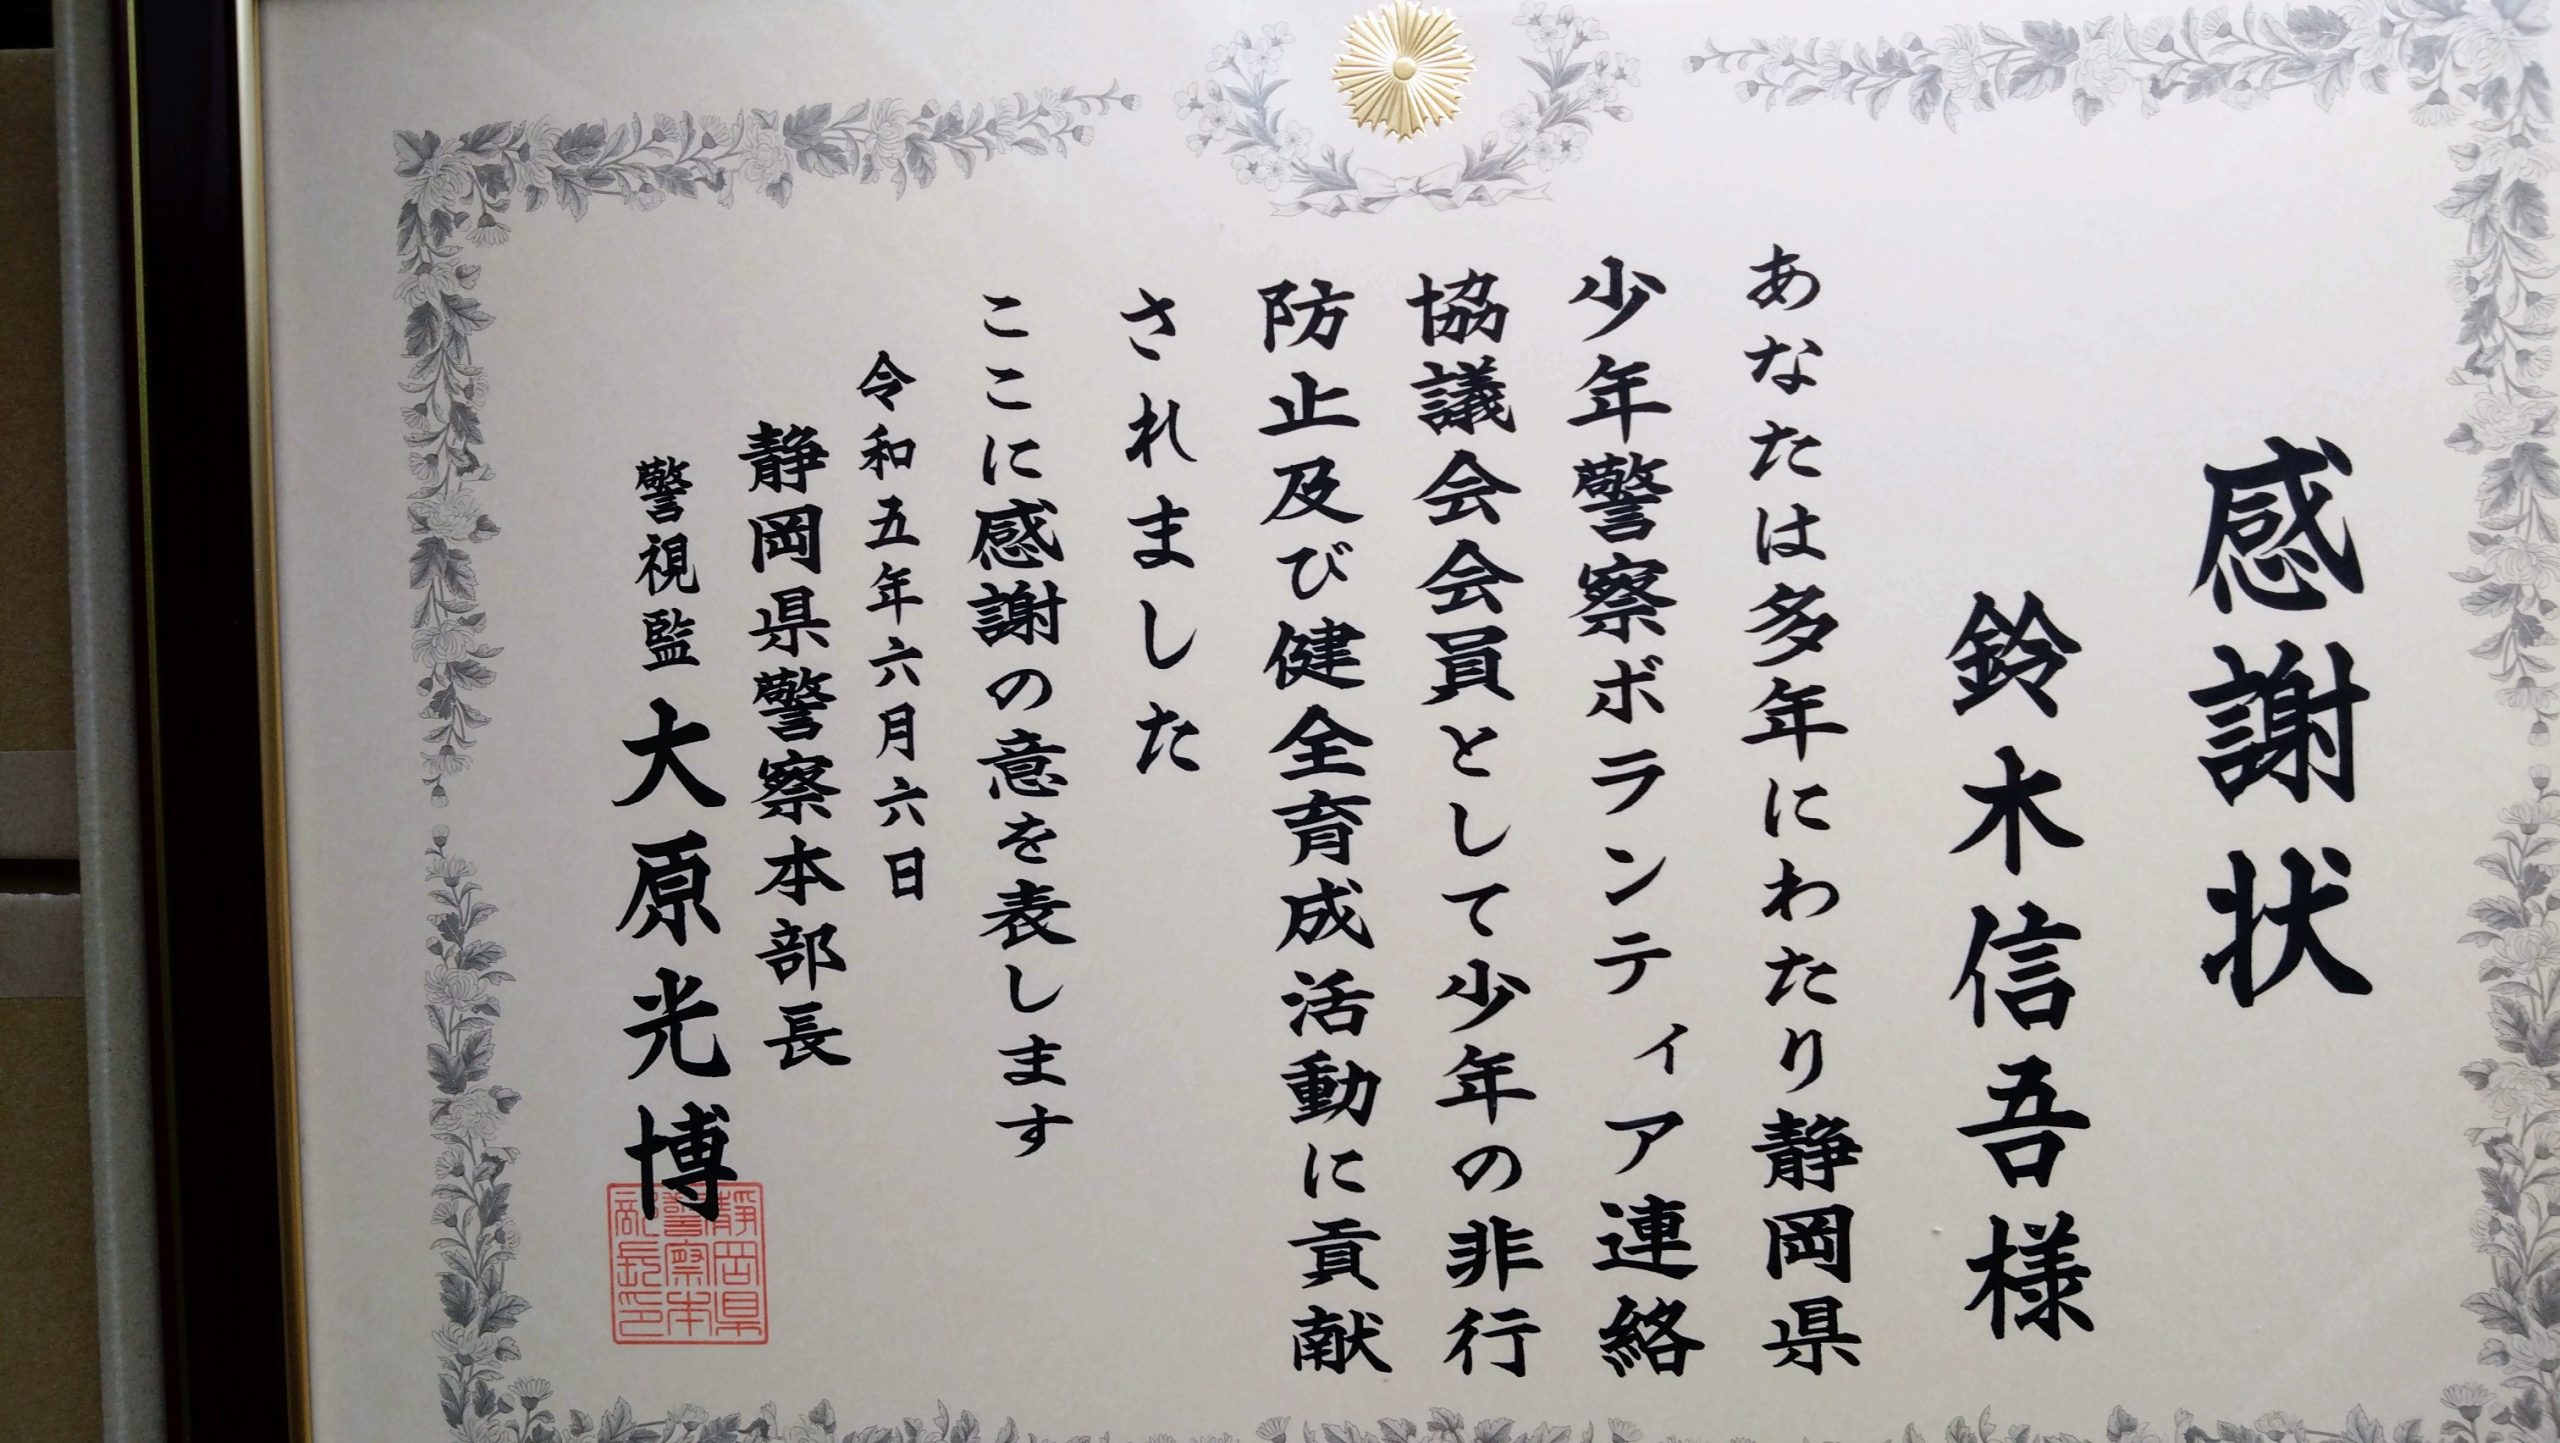 感謝状
鈴木信吾様
あなたは多年にわたり静岡県
少年警察ボランティア連絡
協議会会員として少年の非行
防止及び健全育成活動に貢献
されました
ここに感謝の意を表します
令和五年六月六日
静岡県警察本部長
警視監 大原光博
静岡県
警察本
部長印